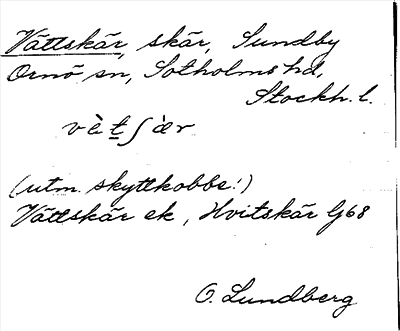 Vättskär, skär, Sundby
Ornö sn, Sotholms hd,
Stockh. l.
vètʃær
(utm. skyttkobbe!)
Vättskär ek, Hvitskär Gj68
O. Lundberg